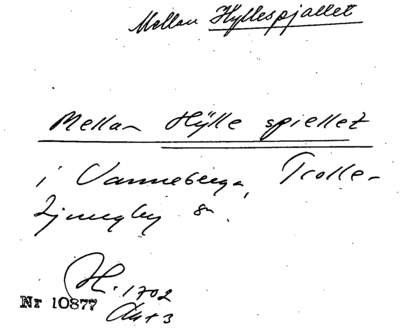 Mellan Hyllespjället
Mellan Hÿlle spiellet
i Vanneberga, Trolle-
Ljungby sn.
H. 1702
Akt 3
Nr 10877